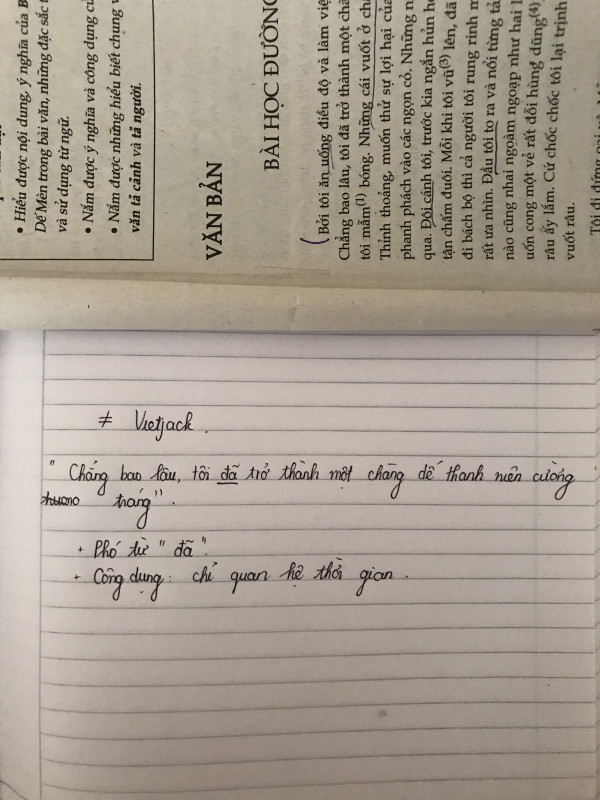 • Hiểu được nội dung, ý nghĩa của B
Dế Mèn trong bài văn, những đặc sắc t
và sử dụng từ ngữ.
• Nắm được ý nghĩa và công dụng củ
• Nắm được những hiểu biết chung v
văn tả cảnh và tả người.
VĂN BẢN
BÀI HỌC ĐƯỜNG
Bởi tôi ăn uống điều độ và làm việ
Chẳng bao lâu, tôi đã trở thành một chà
tôi mẫm(1) bóng. Những cái vuốt ở ch
Thỉnh thoảng, muốn thử sự lợi hại của
phanh phách vào các ngọn cỏ. Những n
qua. Đôi cánh tôi, trước kia ngắn hủn h
tận chấm đuôi. Mỗi khi tôi vũ(3) lên, đã
đi bách bộ thì cả người tôi rung rinh m
rất ưa nhìn. Đầu tôi to ra và nổi từng tả
nào cũng nhai ngoàm ngoạp như hai l
uốn cong một vẻ rất đỗi hùng dũng(4)
râu ấy lắm. Cứ chốc chốc tôi lại trịnh
vuốt râu.
Tôi đi đứng oai vệ
≠ Vietjack.
" Chẳng bao lâu, tôi đã trở thành một chàng dế thanh niên cường
tráng".
+ Phó từ " đã ".
+ Công dụng: chỉ quan hệ thời gian.